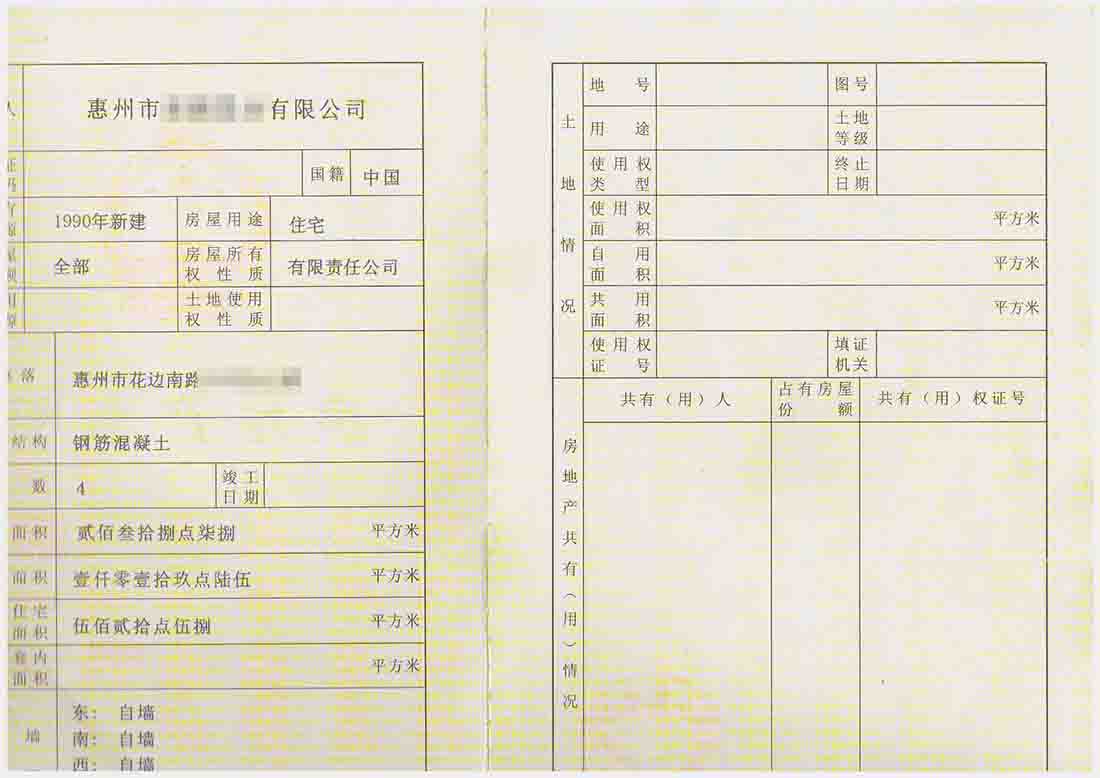 人 惠州市 有限公司
国籍 中国
1990年新建 房屋用途 住宅
全部 房屋所有权性质 有限责任公司
土地使用权性质
落 惠州市花边南路
结构 钢筋混凝土
数 4 竣工日期
面积 贰佰叁拾捌点柒捌 平方米
面积 壹仟零壹拾玖点陆伍 平方米
住宅面积 伍佰贰拾点伍捌 平方米
套内面积 平方米
墙
东: 自墙
南: 自墙
西: 自墙
土地情况
地号 图号
用途 土地等级
使用权类型 终止日期
使用权面积 平方米
自用面积 平方米
共用面积 平方米
使用权证号 填证机关
房地产共有(用)情况
共有(用)人 占有房屋份额 共有(用)权证号